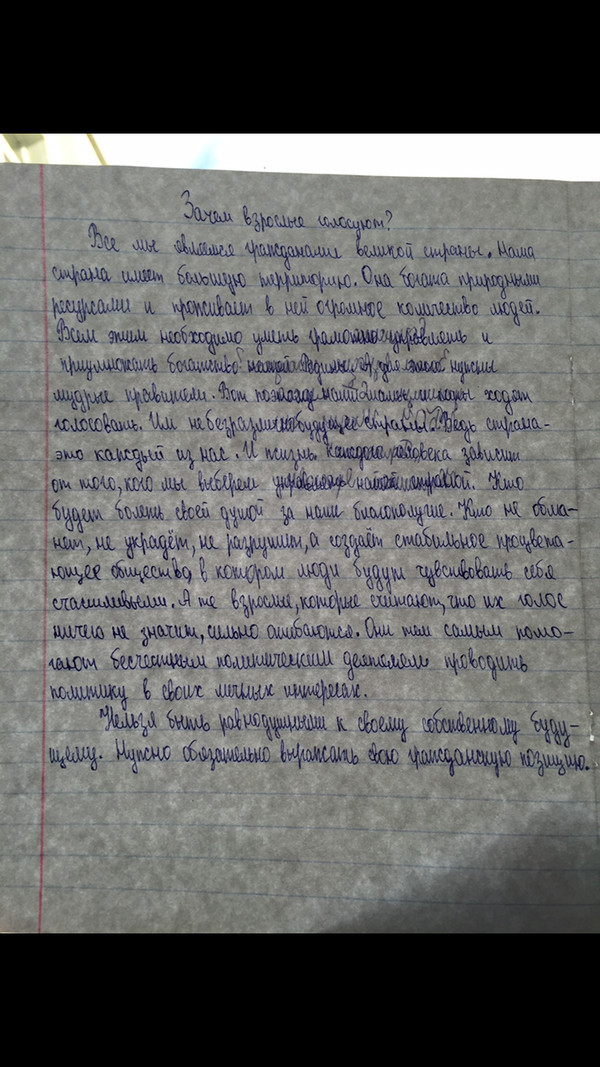 Зачем взрослые голосуют?
Все мы являемся гражданами великой страны. Наша
страна имеет большую территорию. Она богата природными
ресурсами и проживает в ней огромное количество людей.
Всем этим необходимо уметь грамотно управлять и
приумножать богатство нашей Родины. А для этого нужны
мудрые правители. Вот поэтому наши ходят
голосовать. Им небезразлично будущее страны. Ведь страна-
это каждый из нас. И жизнь каждого человека зависит
от того, кого мы выберем управлять нашей страной. Кто
будет болеть своей душой за наше благополучие. Кто не обма-
нет, не украдёт, не разрушит, а создаёт стабильное процвета-
ющее общество, в котором люди будут чувствовать себя
счастливыми. А те взрослые, которые считают, что их голос
ничего не значит, сильно ошибаются. Они тем самым помо-
гают бесчестным политическим деятелям проводить
политику в своих личных интересах.
Нельзя быть равнодушными к своему собственному буду-
щему. Нужно обязательно выражать свою гражданскую позицию.